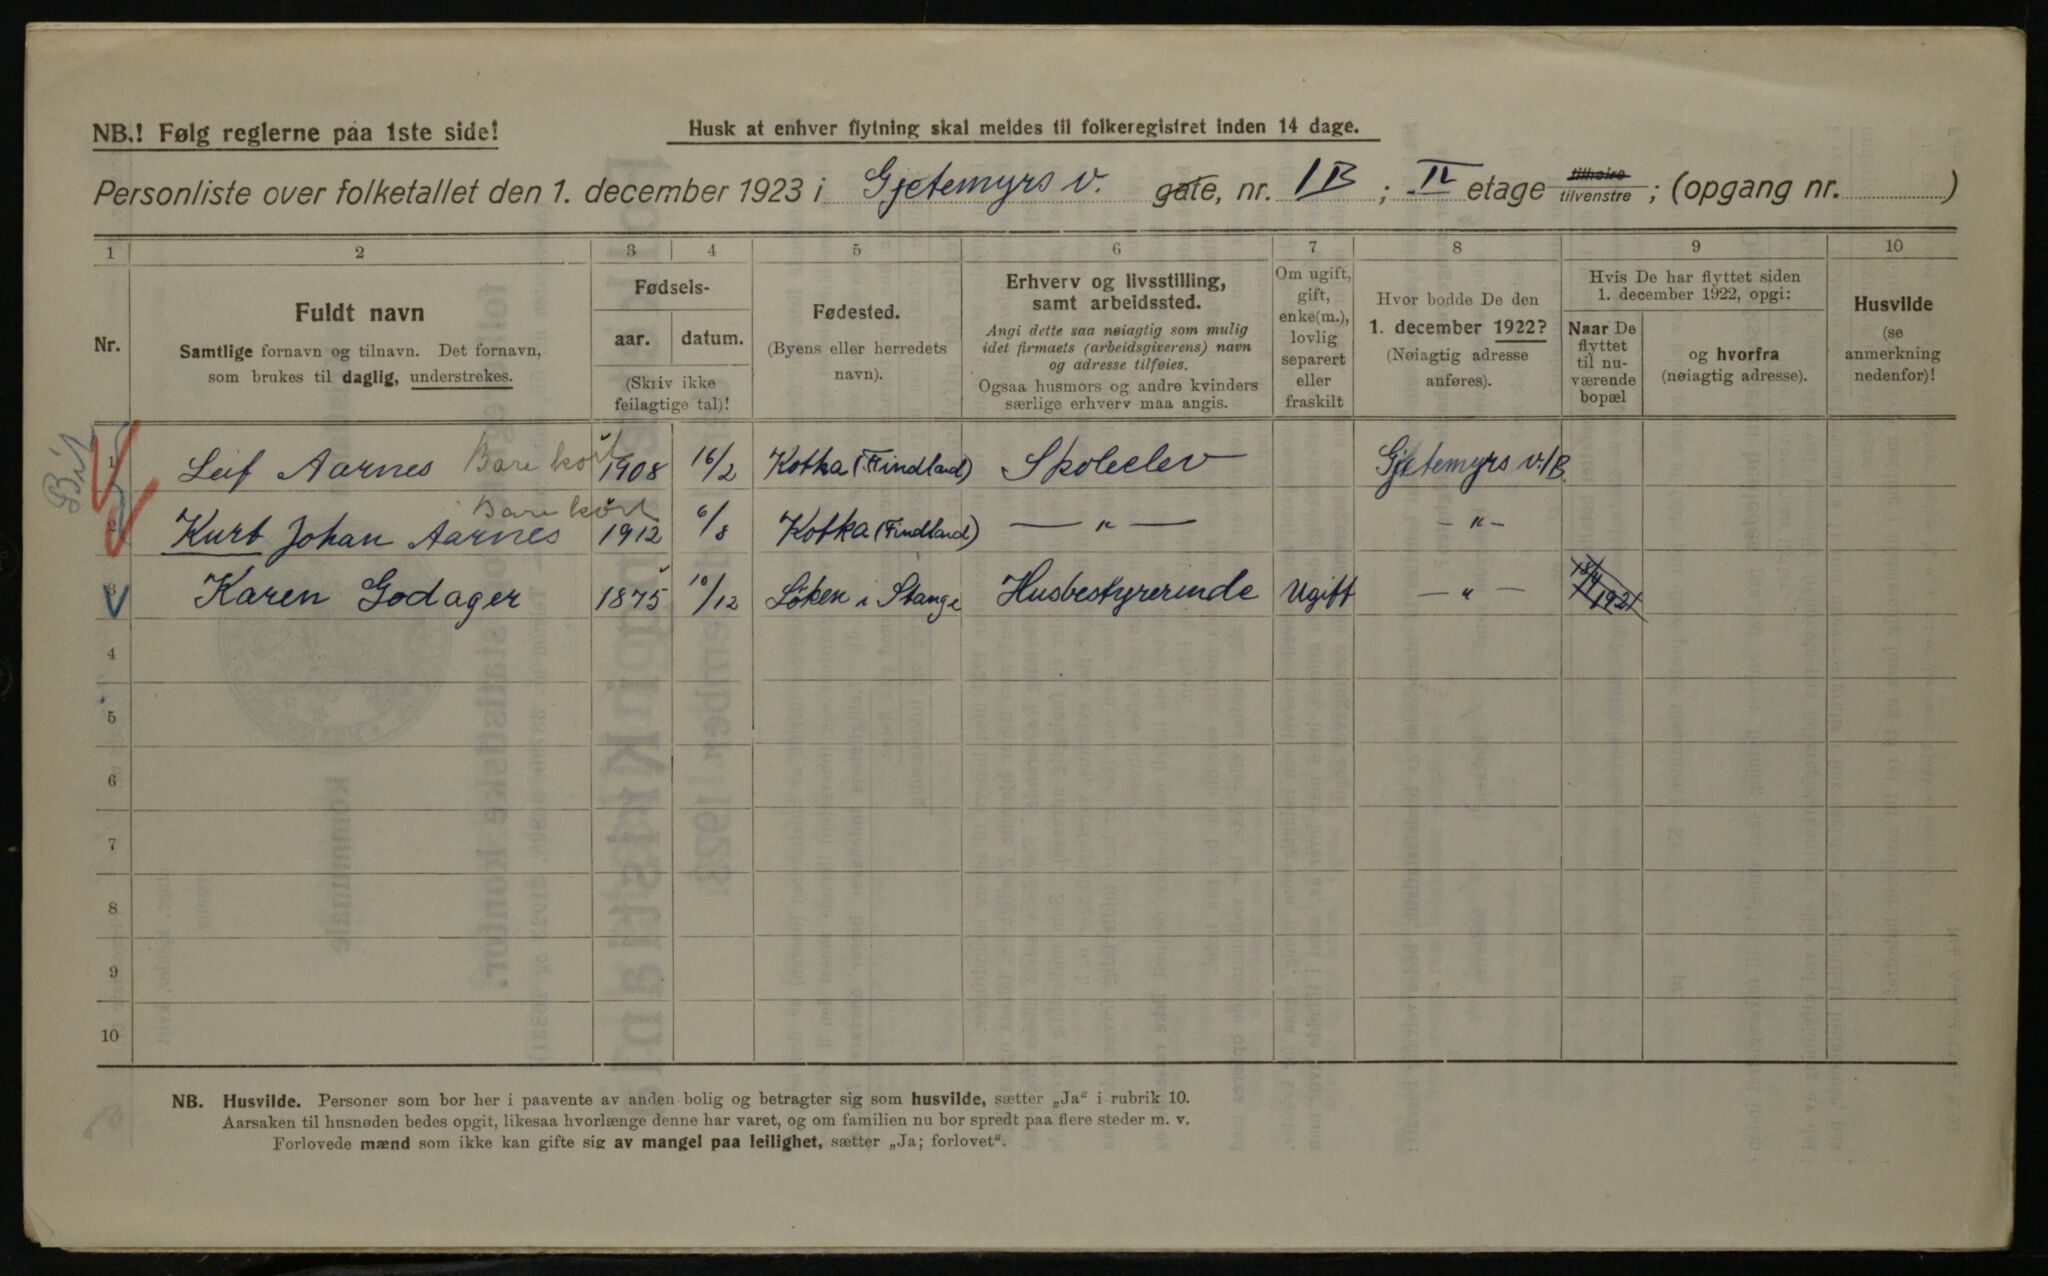 NB.! Følg reglerne paa 1ste side!
Husk at enhver flytning skal meldes til folkeregistret inden 14 dage.
Personliste over folketallet den 1. december 1923 i Gjetemyrs v. gate, nr. 1B; II etage tilhøire tilvenstre; (opgang nr. )
1 2 3 4 5 6 7 8 9 10
Nr.
Fuldt navn
Samtlige fornavn og tilnavn. Det fornavn,
som brukes til daglig, understrekes.
Fødsels-
aar. datum.
(Skriv ikke
feilagtige tal)!
Fødested.
(Byens eller herredets
navn).
Erhverv og livsstilling,
samt arbeidssted.
Angi dette saa nøiagtig som mulig
idet firmaets (arbeidsgiverens) navn
og adresse tilføies.
Ogsaa husmors og andre kvinders
særlige erhverv maa angis.
Om ugift,
gift,
enke(m.),
lovlig
separert
eller
fraskilt
Hvor bodde De den
1. december 1922?
(Nøiagtig adresse
anføres).
Hvis De har flyttet siden
1. december 1922, opgi:
Naar De
flyttet
til nu-
værende
bopæl
og hvorfra
(nøiagtig adresse).
Husvilde
(se
anmerkning
nedenfor)!
1 Leif Aarnes Bare kort 1908 16/2 Kotka (Findland) Skoleelev Gjetemyrs v. 1B.
2 Kurt Johan Aarnes Bare kort 1912 6/8 Kotka (Findland) — " — — " —
3 Karen Godager 1875 10/12 Løken i Stange Husbestyrerinde Ugift — " — 1921
4
5
6
7
8
9
10
NB. Husvilde. Personer som bor her i paavente av anden bolig og betragter sig som husvilde, sætter „Ja" i rubrik 10.
Aarsaken til husnøden bedes opgit, likesaa hvorlænge denne har varet, og om familien nu bor spredt paa flere steder m. v.
Forlovede mænd som ikke kan gifte sig av mangel paa leilighet, sætter „Ja; forlovet".